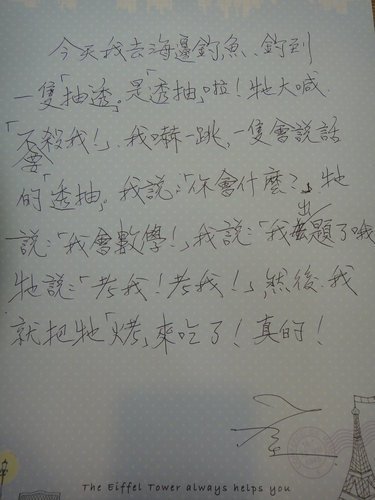 今天我去海邊釣魚、釣到
一隻「抽透」。是「透抽」啦！牠大喊
「不要殺我！」、我嚇一跳，一隻會說話
的「透抽」。我說：「你會什麼？」牠
說：「我會數學！」，我說：「我出題了哦
牠說：「考我！考我！」，然後、我
就把牠「烤」來吃了！真的！
The Eiffel Tower always helps you